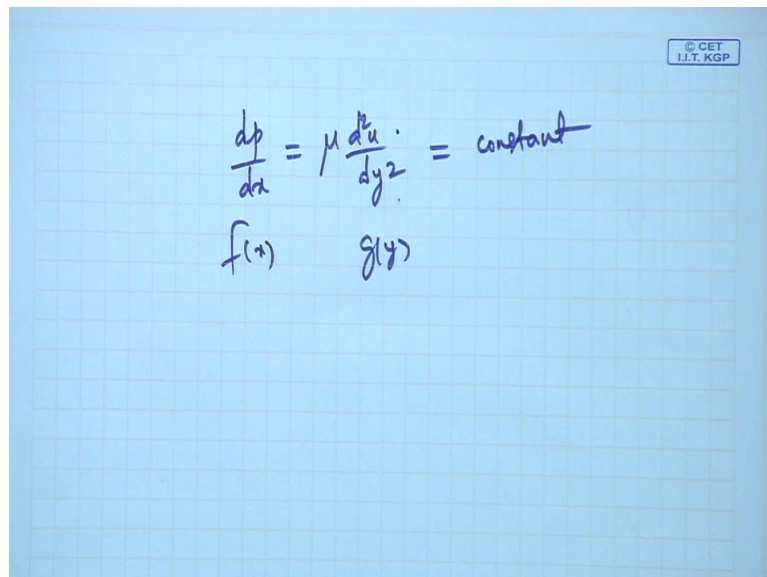 © CET
I.I.T. KGP
dp/dx = μ d²u/dy² = constant
f(x) g(y)